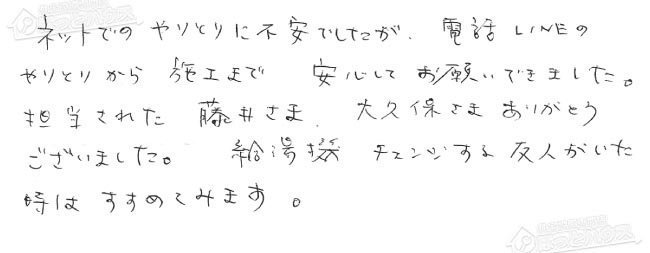 ネットでの やりとりに不安でしたが、電話 LINEの
やりとりから 施工まで 安心して お願いできました。
担当された 藤井さま、大久保さま ありがとう
ございました。 給湯器 チェンジする 友人がいた
時は すすめてみます。